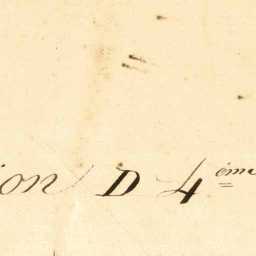 ion D 4ème